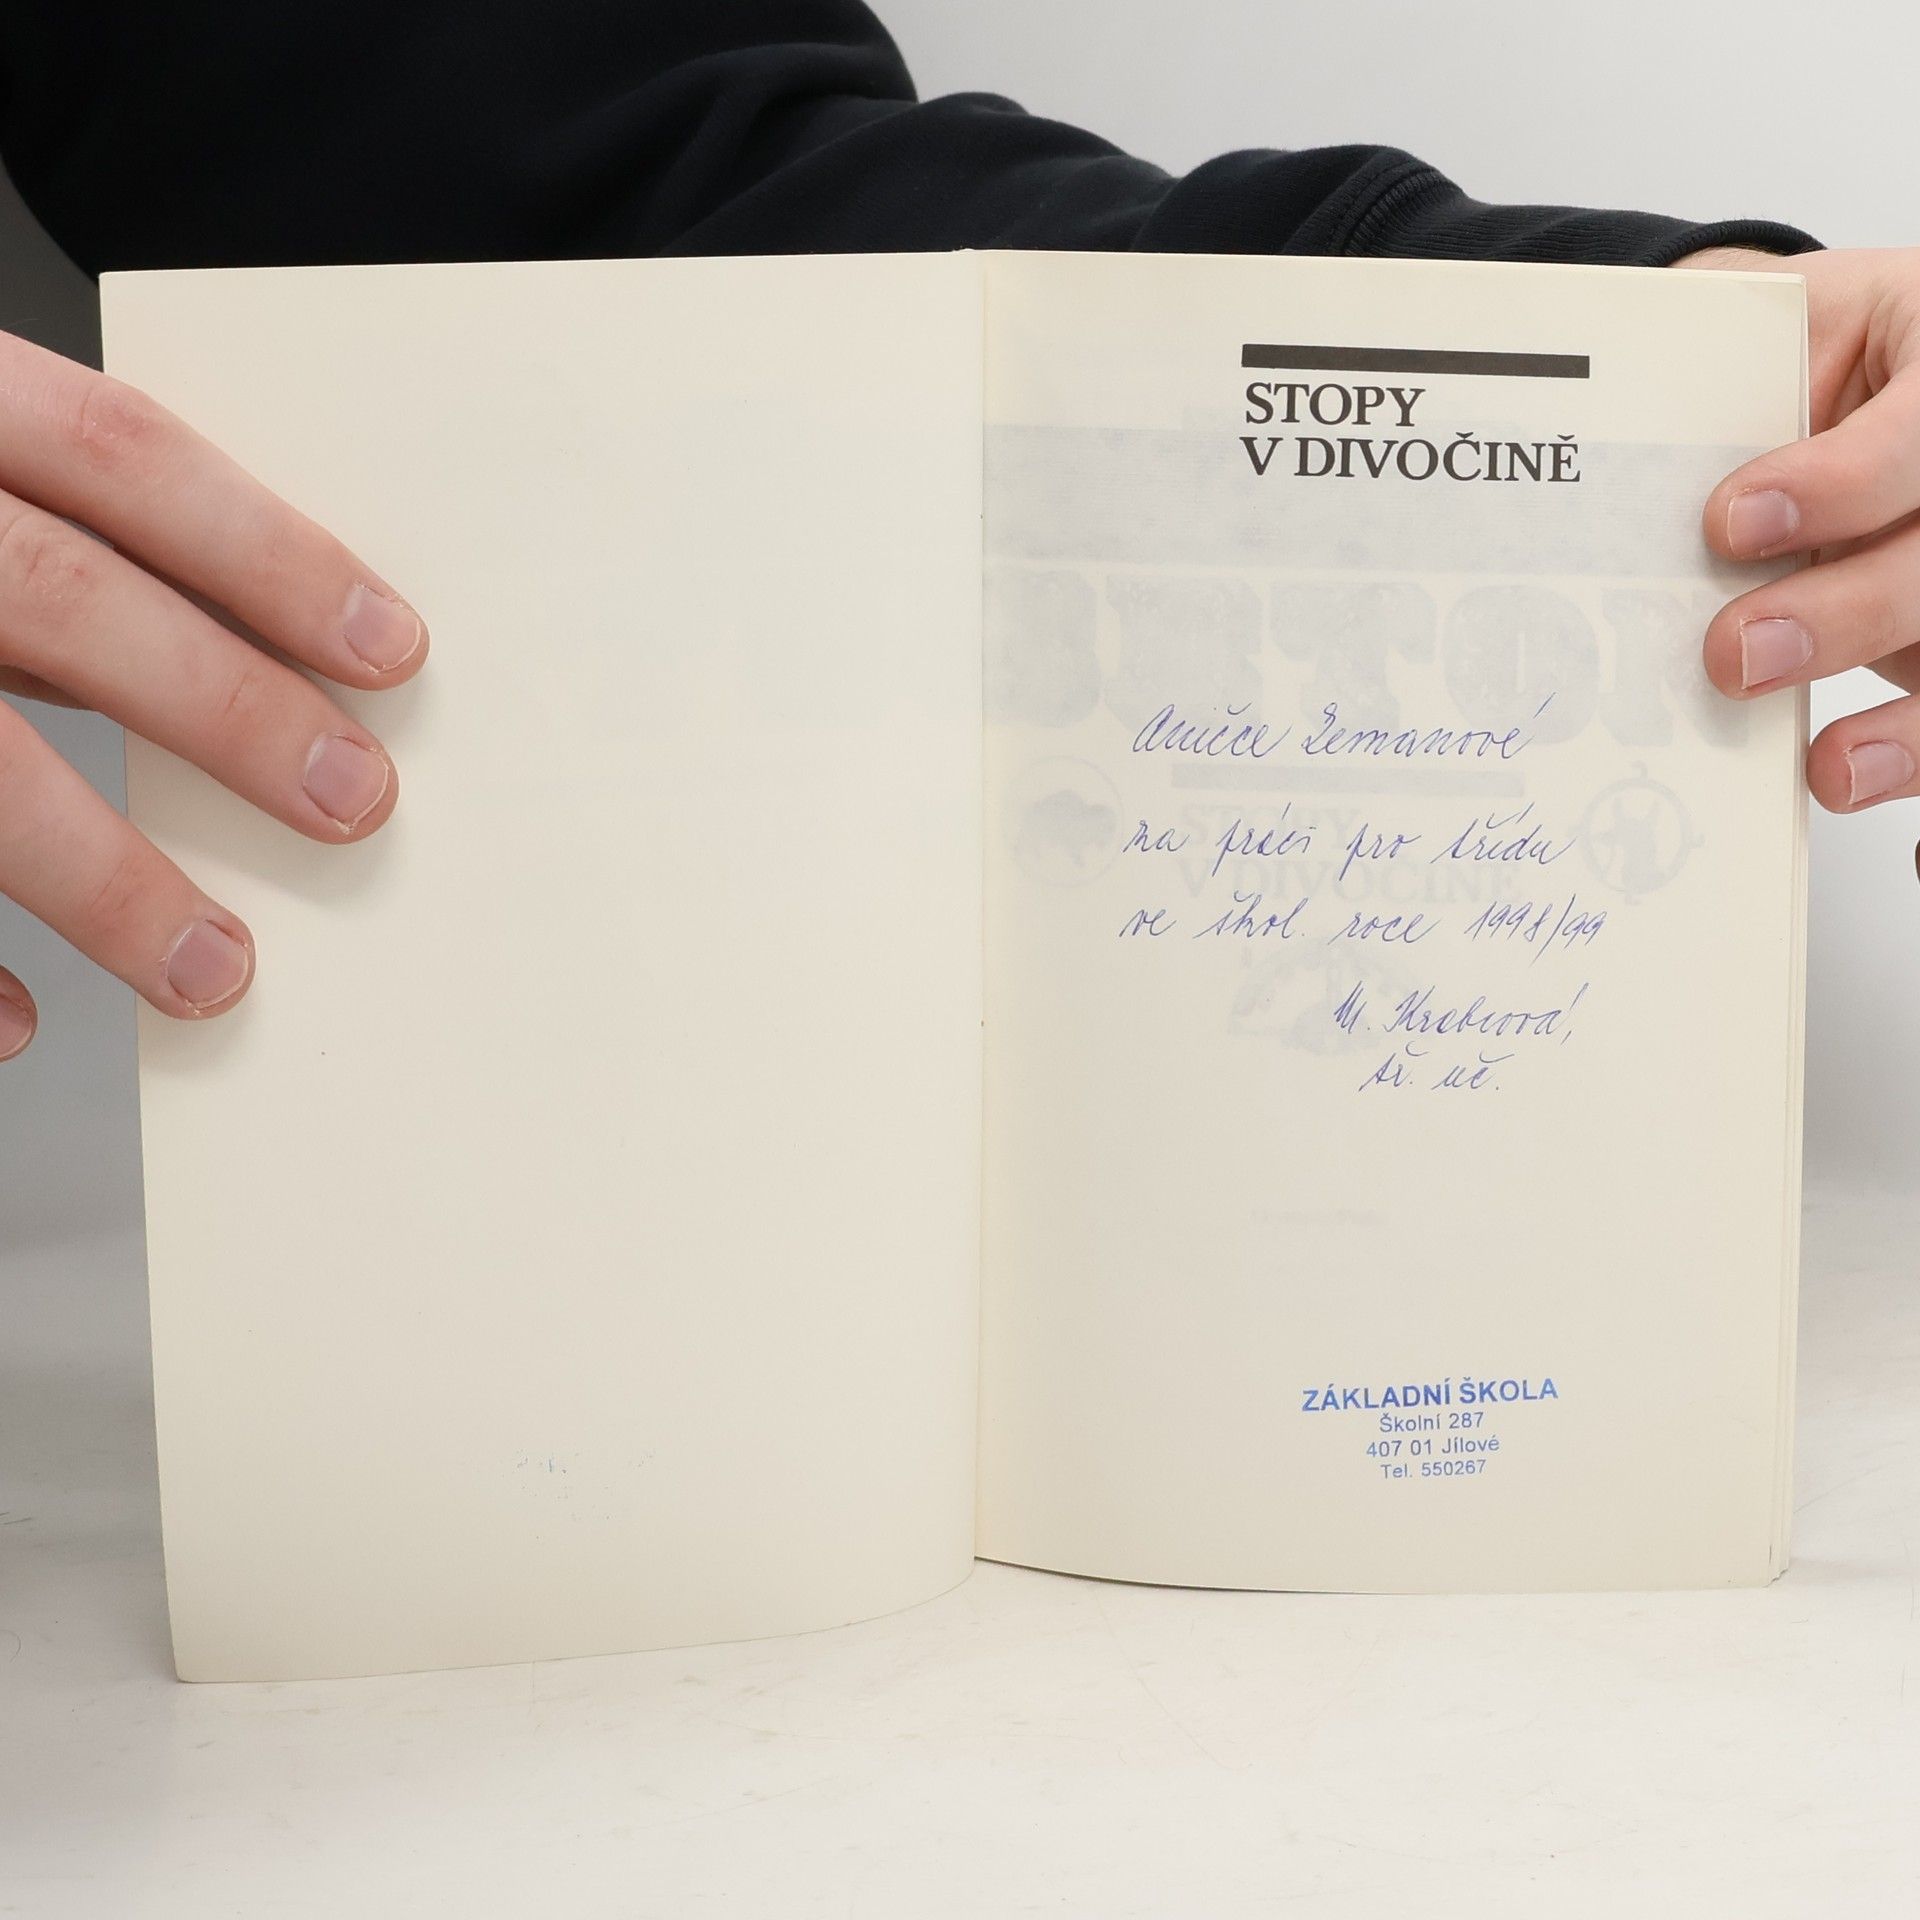 STOPY
V DIVOČINĚ
Aničce Zemanové
za práci pro třídu
ve škol. roce 1998/99
M. Krabcová,
tř. uč.
ZÁKLADNÍ ŠKOLA
Školní 287
407 01 Jílové
Tel. 550267